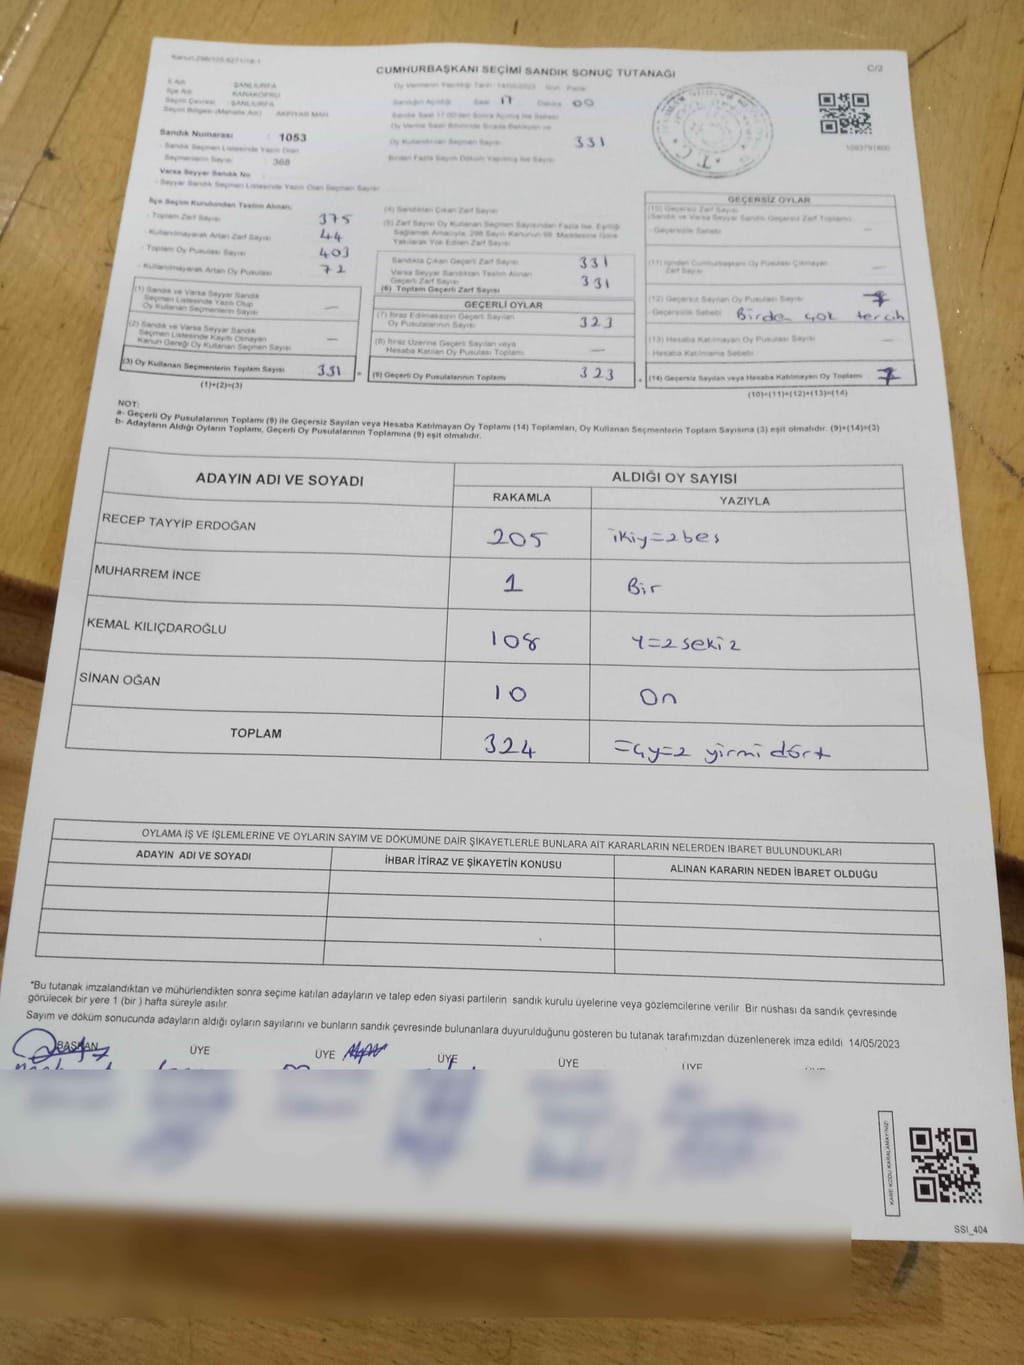 CUMHURBAŞKANI SEÇİMİ SANDIK SONUÇ TUTANAĞI
C/2
İl Adı : ŞANLIURFA
İlçe Adı : KARAKÖPRÜ
Seçim Çevresi : ŞANLIURFA
Sandık Numarası 1053
Sandık Seçmen Listesinde Yazılı Olan
Seçmenlerin Sayısı 368
Varsa Seyyar Sandık No
Seyyar Sandık Seçmen Listesinde Yazılı Olan Seçmen Sayısı
Sandığın Açıldığı Saat 17 Dakika 00
Oy Kullandırılan Seçmen Sayısı 331
İlçe Seçim Kurulundan Teslim Alınan;
- Toplam Zarf Sayısı 375
- Kullanılmayarak Artan Zarf Sayısı 44
- Toplam Oy Pusulası Sayısı 403
- Kullanılmayarak Artan Oy Pusulası 72
(1) Sandık ve Varsa Seyyar Sandık
Seçmen Listesinde Yazılı Olup
Oy Kullanan Seçmenlerin Sayısı —
(2) Sandık ve Varsa Seyyar Sandık
Seçmen Listesinde Kayıtlı Olmayan
Kanun Gereği Oy Kullanan Seçmen Sayısı —
(3) Oy Kullanan Seçmenlerin Toplam Sayısı 331
(1)+(2)=(3)
(4) Sandıktan Çıkan Zarf Sayısı
(5) Zarf Sayısı Oy Kullanan Seçmen Sayısından Fazla ise, Eşitliği
Sağlamak Amacıyla, 298 Sayılı Kanunun 98. Maddesine Göre
Yakılarak Yok Edilen Zarf Sayısı
Sandıkta Çıkan Geçerli Zarf Sayısı 331
Varsa Seyyar Sandıktan Teslim Alınan
Geçerli Zarf Sayısı 331
(6) Toplam Geçerli Zarf Sayısı
GEÇERLİ OYLAR
(7) İtiraz Edilmeksizin Geçerli Sayılan
Oy Pusulalarının Sayısı 323
(8) İtiraz Üzerine Geçerli Sayılan veya
Hesaba Katılan Oy Pusulası Toplamı —
(9) Geçerli Oy Pusulalarının Toplamı 323
GEÇERSİZ OYLAR
(10) Geçersiz Zarf Sayısı
(Sandık ve Varsa Seyyar Sandık Geçersiz Zarf Toplamı)
Geçersizlik Sebebi —
(11) İçinden Cumhurbaşkanı Oy Pusulası Çıkmayan
Zarf Sayısı —
(12) Geçersiz Sayılan Oy Pusulası Sayısı 7
Geçersizlik Sebebi Birden çok tercih
(13) Hesaba Katılmayan Oy Pusulası Sayısı —
Hesaba Katılmama Sebebi
(14) Geçersiz Sayılan veya Hesaba Katılmayan Oy Toplamı 7
(10)+(11)+(12)+(13)=(14)
NOT:
a- Geçerli Oy Pusulalarının Toplamı (9) ile Geçersiz Sayılan veya Hesaba Katılmayan Oy Toplamı (14) Toplamları, Oy Kullanan Seçmenlerin Toplam Sayısına (3) eşit olmalıdır. (9)+(14)=(3)
b- Adayların Aldığı Oyların Toplamı, Geçerli Oy Pusulalarının Toplamına (9) eşit olmalıdır.
ADAYIN ADI VE SOYADI
ALDIĞI OY SAYISI
RAKAMLA YAZIYLA
RECEP TAYYİP ERDOĞAN 205 ikiy=2bes
MUHARREM İNCE 1 Bir
KEMAL KILIÇDAROĞLU 108 Y=2seki2
SİNAN OĞAN 10 On
TOPLAM 324 =çy=2 yirmi dört
OYLAMA İŞ VE İŞLEMLERİNE VE OYLARIN SAYIM VE DÖKÜMÜNE DAİR ŞİKAYETLERLE BUNLARA AİT KARARLARIN NELERDEN İBARET BULUNDUKLARI
ADAYIN ADI VE SOYADI İHBAR İTİRAZ VE ŞİKAYETİN KONUSU ALINAN KARARIN NEDEN İBARET OLDUĞU
*Bu tutanak imzalandıktan ve mühürlendikten sonra seçime katılan adayların ve talep eden siyasi partilerin sandık kurulu üyelerine veya gözlemcilerine verilir. Bir nüshası da sandık çevresinde
görülecek bir yere 1 (bir ) hafta süreyle asılır.
Sayım ve döküm sonucunda adayların aldığı oyların sayılarını ve bunların sandık çevresinde bulunanlara duyurulduğunu gösteren bu tutanak tarafımızdan düzenlenerek imza edildi. 14/05/2023
BAŞKAN ÜYE ÜYE ÜYE ÜYE ÜYE
KARE KODU KARALAMAYINIZ!
SSI_404